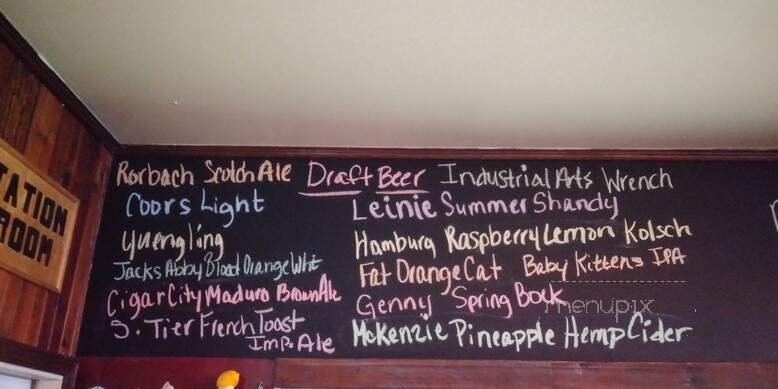 TATION
ROOM
Draft Beer
Rorbach Scotch Ale
Coors Light
Yuengling
Jacks Abby Blood Orange Wht
Cigar City Maduro Brown Ale
S. Tier French Toast
Imp. Ale
Industrial Arts Wrench
Leinie Summer Shandy
Hamburg Raspberry Lemon Kolsch
Fat Orange Cat Baby Kittens IPA
Genny Spring Bock
McKenzie Pineapple Hemp Cider
menupix